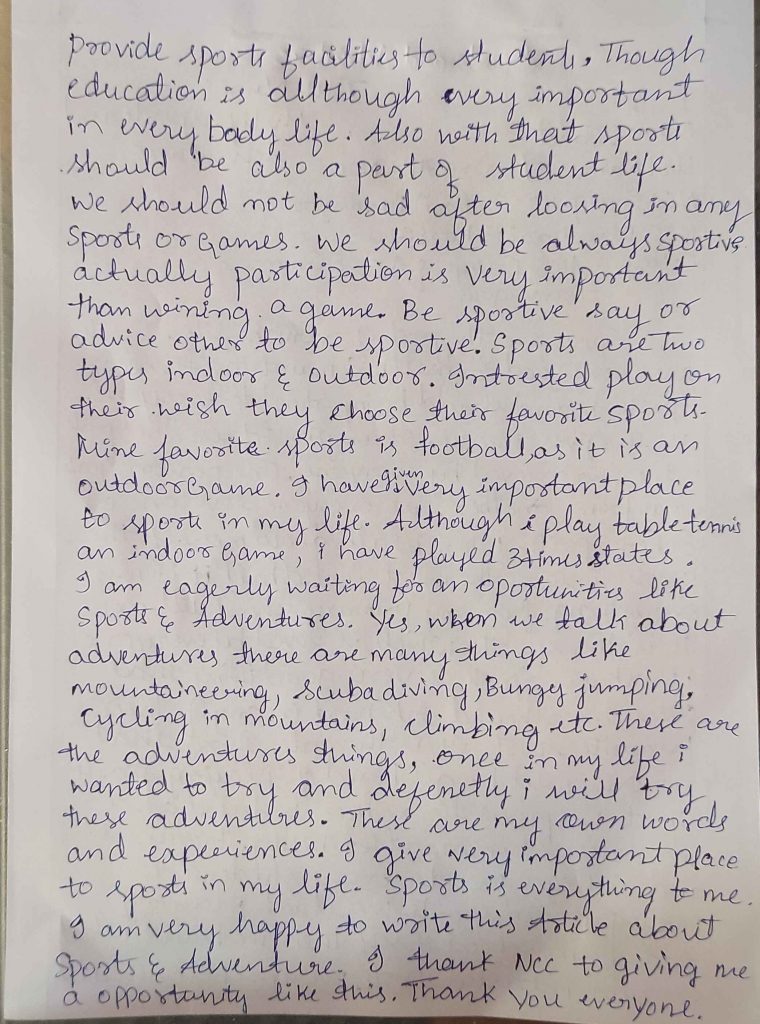 Provide sports facilities to students, Though
education is allthough every important
in every body life. Also with that sports
should be also a part of student life.
We should not be sad after loosing in any
Sports or Games. We should be always sportive
actually participation is very important
than wining a game. Be sportive say or
advice other to be sportive. Sports are Two
types indoor & outdoor. Intrested play on
their wish they choose their favorite sports.
Mine favorite sports is football, as it is an
outdoor Game. I have given very important place
to sports in my life. Although i play table tennis
an indoor Game, i have played 3times states.
I am eagerly waiting for an oportunities like
Sports & Adventures. Yes, when we talk about
adventures there are many things like
mountaineering, Scuba diving, Bungy jumping,
Cycling in mountains, climbing etc. These are
the adventures things, once in my life i
wanted to try and defenetly i will try
these adventures. These are my own words
and expeeiences. I give very important place
to sports in my life. Sports is everything to me.
I am very happy to write this Article about
Sports & Adventure. I thank NCC to giving me
a opportunity like this. Thank you everyone.